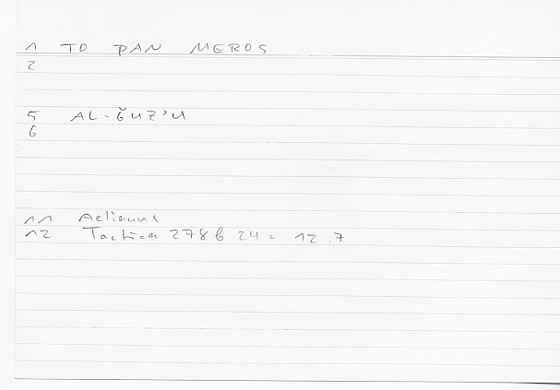 1 TO PAN MEROS
2
5 AL-ǦUZ'U
6
11 Aelianus
12 Tactica 278 b 24 = 12.7